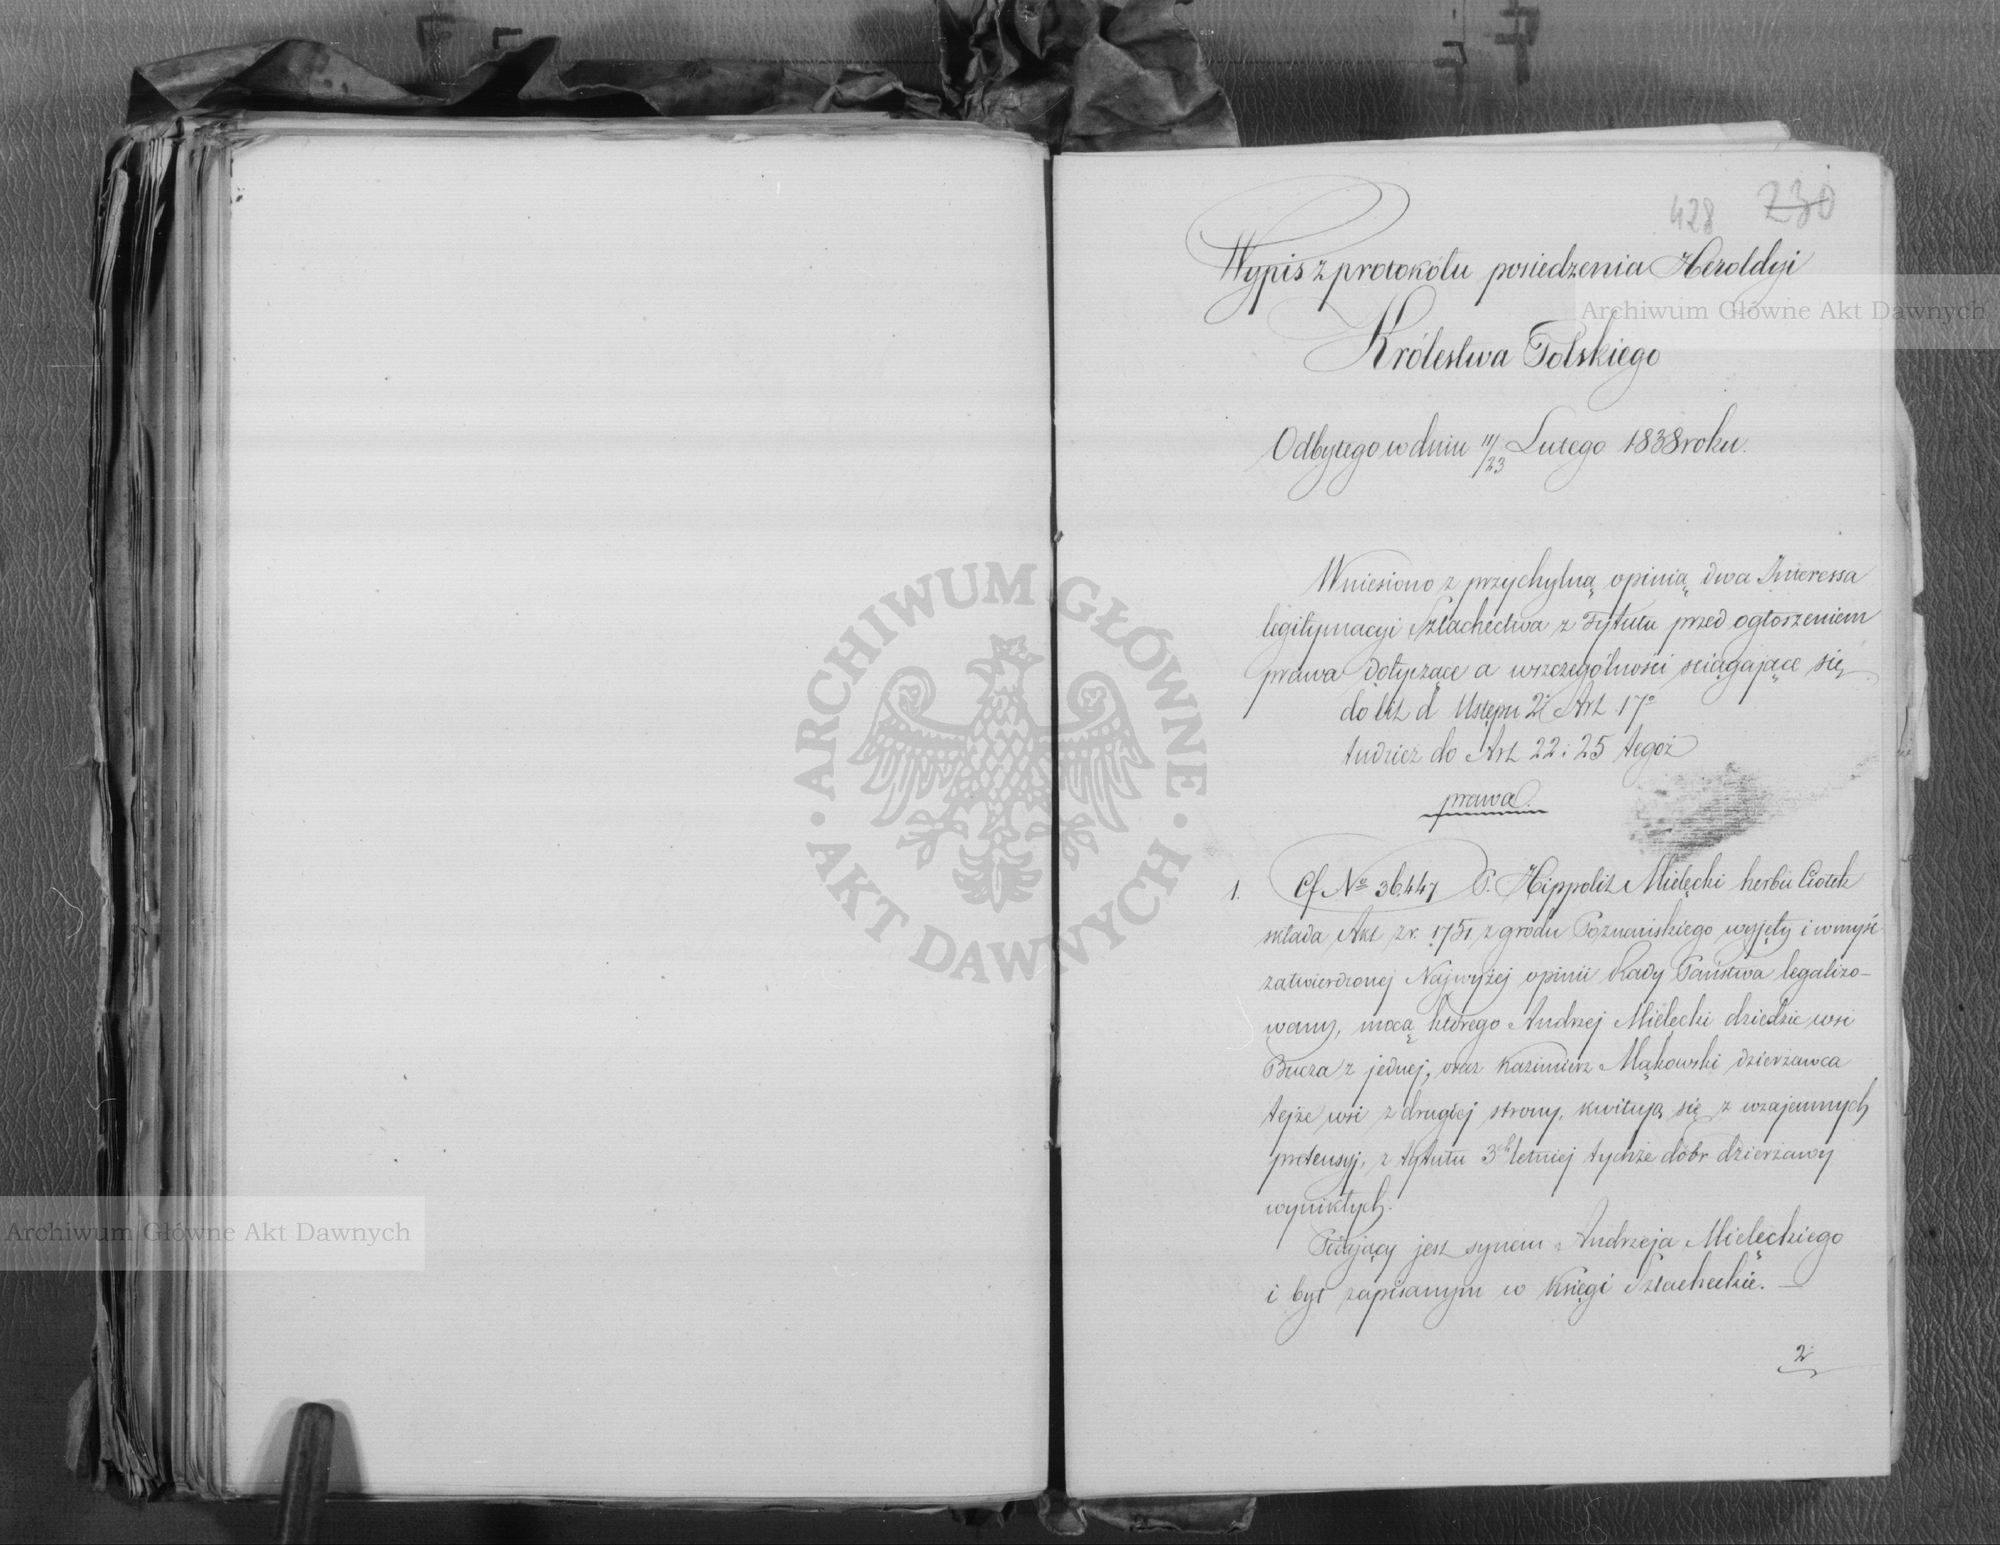 428 230
Wypis z protokółu posiedzenia Heroldyi
Królestwa Polskiego
Odbytego w dniu 11/23 Lutego 1838 roku.
Wniesiono z przychylną opinią dwa Interessa
legitymacyi Szlachectwa z Tytułu przed ogłoszeniem
prawa dotyczące a wszczególności sciągające się
do lit d Ustępu 2 Art 17°
tudzież do Art 22 i 25 tegoż
prawa.
1. Cf № 36447 P. Hippolit Mielęcki herbu Ciołek
składa Akt z r. 1751 z grodu Poznańskiego wyjęty i w myśl
zatwierdzonej Najwyżej opinii Rady Państwa legalizo-
wany, mocą którego Andrzej Mielęcki dziedzic wsi
Bucza z jednej, oraz Kazimierz Mąkowski dzierżawca
tejże wsi z drugiej strony, kwitują się z wzajemnych
pretensyj, z tytułu 3ch letniej tychże dóbr dzierżawy
wynikłych.
jest synem Andrzeja Mielęckiego
i był zapisanym w Księgi Szlacheckie. —
2
Archiwum Główne Akt Dawnych
Archiwum Główne Akt Dawnych
ARCHIWUM GŁÓWNE AKT DAWNYCH